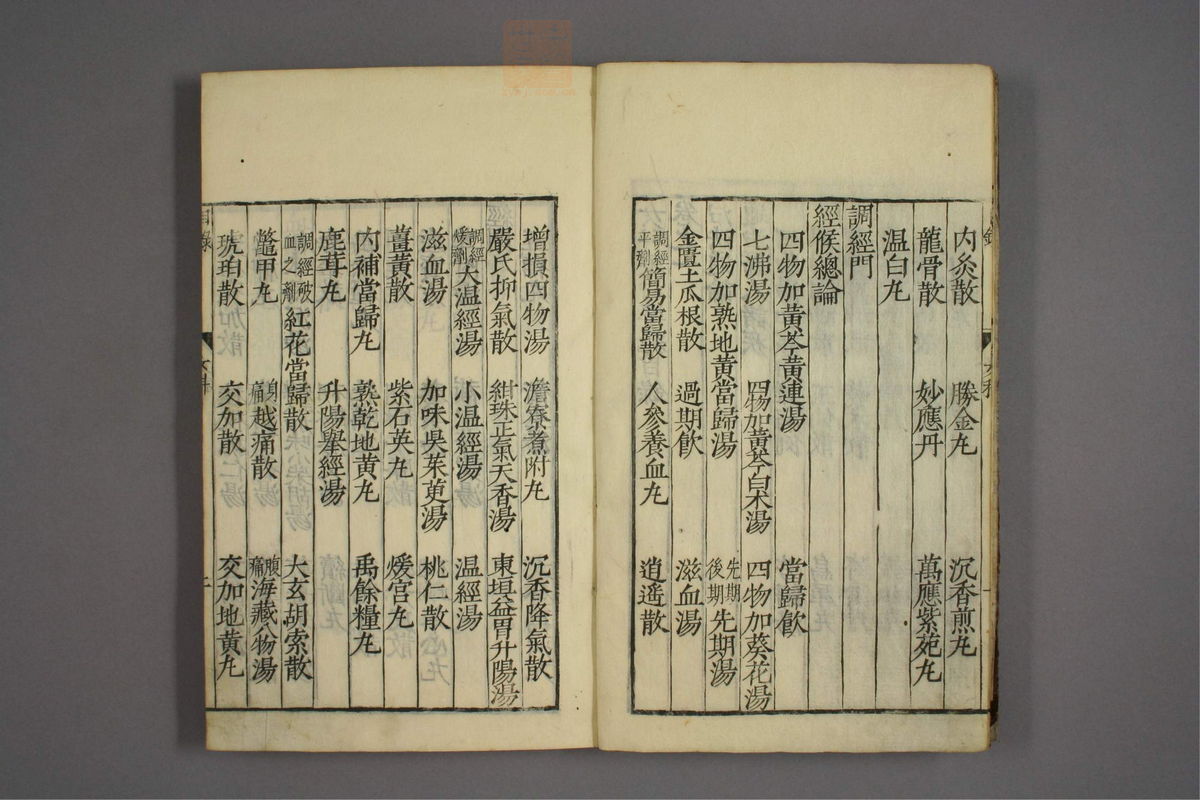 內灸散 勝金丸 沉香煎丸
龍骨散 妙應丹 萬應紫苑丸
温白丸
調經門
經候總論
四物加黃芩黃連湯 當歸飲
七沸湯 四物加黃芩白术湯 四物加葵花湯
四物加熟地黃當歸湯 先期後期 先期湯
金匱土瓜根散 過期飲 滋血湯
調經平劑 簡易當歸散 人參養血丸 逍遙散
增損四物湯 澹寮煮附丸 沉香降氣散
嚴氏抑氣散 紺珠正氣天香湯 東垣益胃升陽湯
調經煖劑 大温經湯 小温經湯 温經湯
滋血湯 加味吳茱萸湯 桃仁散
薑黃散 紫石英丸 煖宮丸
內補當歸丸 熟乾地黃丸 禹餘糧丸
鹿茸丸 升陽舉經湯
調經破血之劑 紅花當歸散 大玄胡索散
鱉甲丸 身痛 越痛散 腹痛 海藏八物湯
琥珀散 交加散 交加地黃丸
目錄